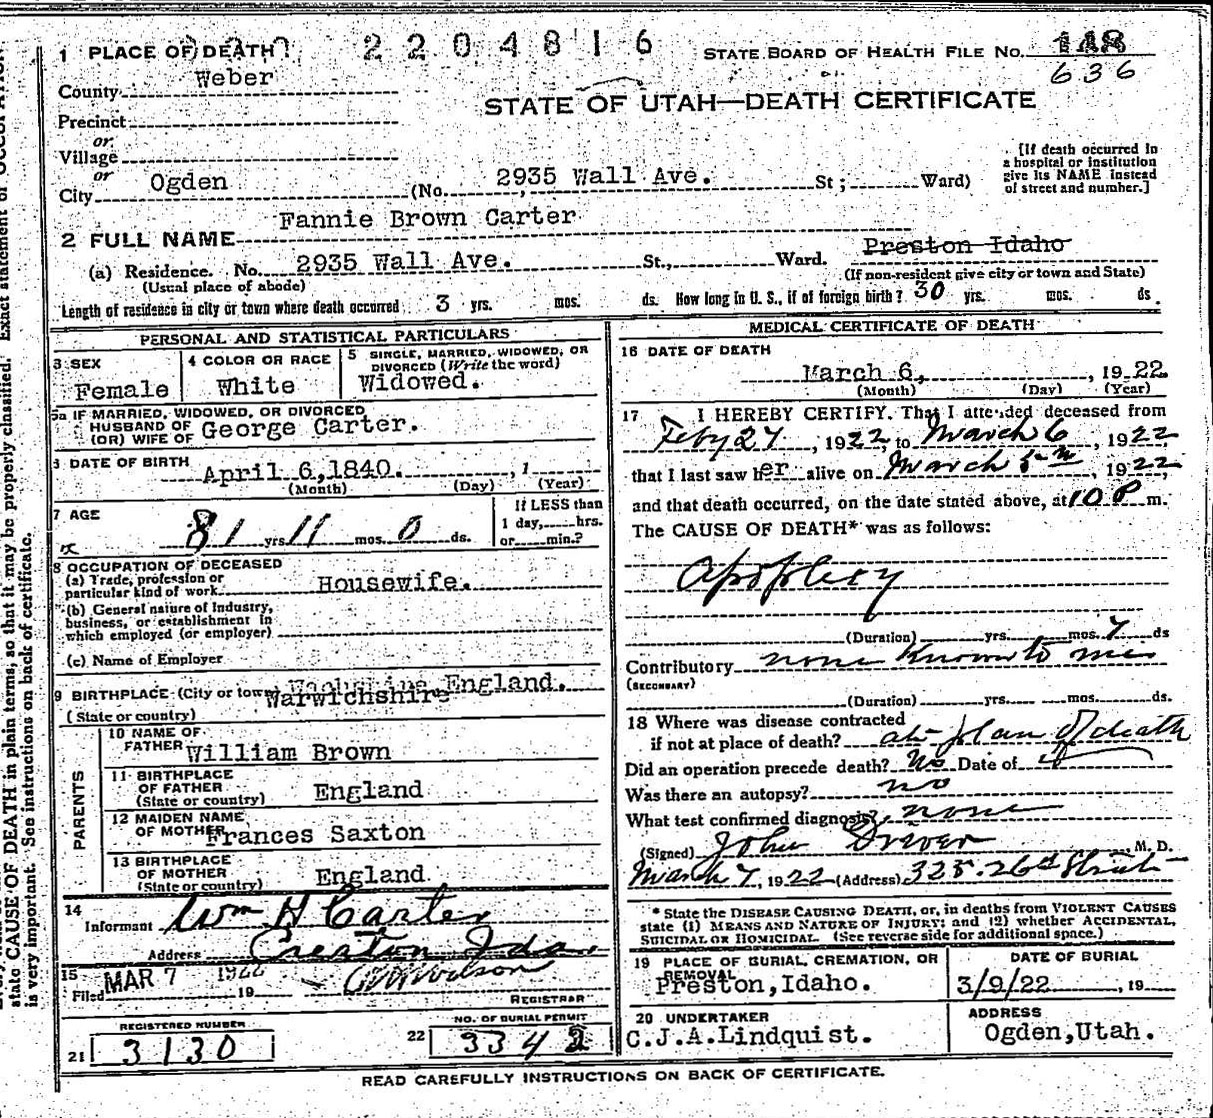 1 PLACE OF DEATH
2204816
STATE BOARD OF HEALTH FILE No. 148
636
County Weber
STATE OF UTAH—DEATH CERTIFICATE
Precinct
or
Village
or
City Ogden (No. 2935 Wall Ave. St; Ward)
[If death occurred in
a hospital or institution
give its NAME instead
of street and number.]
2 FULL NAME Fannie Brown Carter
(a) Residence. No. 2935 Wall Ave. St., Ward. Preston Idaho
(Usual place of abode) (If non-resident give city or town and State)
Length of residence in city or town where death occurred 3 yrs. mos. ds. How long in U. S., if of foreign birth? 30 yrs. mos. ds.
PERSONAL AND STATISTICAL PARTICULARS
3 SEX
Female
4 COLOR OR RACE
White
5 SINGLE, MARRIED, WIDOWED, OR
DIVORCED (Write the word)
Widowed.
5a IF MARRIED, WIDOWED, OR DIVORCED
HUSBAND OF
(OR) WIFE OF George Carter.
6 DATE OF BIRTH April 6,1840. , 1
(Month) (Day) (Year)
7 AGE
81 yrs. 11 mos. 0 ds.
If LESS than
1 day, hrs.
or min.?
8 OCCUPATION OF DECEASED
(a) Trade, profession or
particular kind of work Housewife.
(b) General nature of Industry,
business, or establishment in
which employed (or employer)
(c) Name of Employer
9 BIRTHPLACE (City or town) England.
Warwichshire
(State or country)
PARENTS
10 NAME OF
FATHER William Brown
11 BIRTHPLACE
OF FATHER England
(State or country)
12 MAIDEN NAME
OF MOTHER Frances Saxton
13 BIRTHPLACE
OF MOTHER England
(State or country)
14
Informant Wm H Carter
Address Creston Ida.
15
Filed MAR 7 1922 19 Wilson
REGISTRAR
REGISTERED NUMBER
21 3130
NO. OF BURIAL PERMIT
22 3342
MEDICAL CERTIFICATE OF DEATH
16 DATE OF DEATH
March 6, , 1922
(Month) (Day) (Year)
17 I HEREBY CERTIFY, That I attended deceased from
Feby 27, 1922, to March 6, 1922
that I last saw her alive on March 5th, 1922
and that death occurred, on the date stated above, at 10 P m.
The CAUSE OF DEATH* was as follows:
Apoplexy
(Duration) yrs. mos. 7 ds
Contributory none known to me
(SECONDARY)
(Duration) yrs. mos. ds.
18 Where was disease contracted
if not at place of death? at place of death
Did an operation precede death? No Date of
Was there an autopsy? no
What test confirmed diagnosis? none
(Signed) John Driver, M. D.
March 7, 1922 (Address) 325-26th Street
* State the DISEASE CAUSING DEATH, or, in deaths from VIOLENT CAUSES
state (1) MEANS AND NATURE OF INJURY; and (2) whether ACCIDENTAL,
SUICIDAL OR HOMICIDAL. (See reverse side for additional space.)
19 PLACE OF BURIAL, CREMATION, OR
REMOVAL
Preston,Idaho.
DATE OF BURIAL
3/9/22 , 19
20 UNDERTAKER
C.J.A.Lindquist.
ADDRESS
Ogden,Utah.
READ CAREFULLY INSTRUCTIONS ON BACK OF CERTIFICATE.
state CAUSE OF DEATH in plain terms, so that it may be properly classified. Exact statement of OCCUPATION
is very important. See instructions on back of certificate.